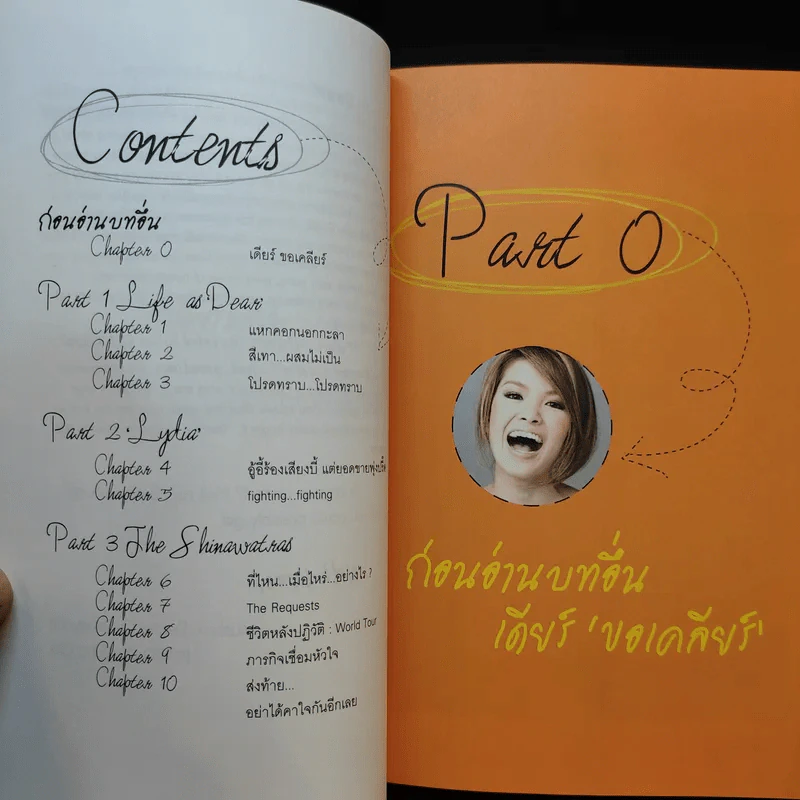 Contents
ก่อนอ่านบทอื่น
Chapter 0 เดียร์ ขอเคลียร์
Part 1 Life as Dear
Chapter 1 แหกคอกนอกกะลา
Chapter 2 สีเทา...ผสมไม่เป็น
Chapter 3 โปรดทราบ...โปรดทราบ
Part 2 'Lydia'
Chapter 4 อู้อี้ร้องเสียงบี้ แต่ยอดขายพุ่งปรี๊ด
Chapter 5 fighting...fighting
Part 3 The Shinawatras
Chapter 6 ที่ไหน...เมื่อไหร่...อย่างไร ?
Chapter 7 The Requests
Chapter 8 ชีวิตหลังปฏิวัติ : World Tour
Chapter 9 ภารกิจเชื่อมหัวใจ
Chapter 10 ส่งท้าย...
อย่าได้คาใจกันอีกเลย
Part 0
ก่อนอ่านบทอื่น
เดียร์ 'ขอเคลียร์'